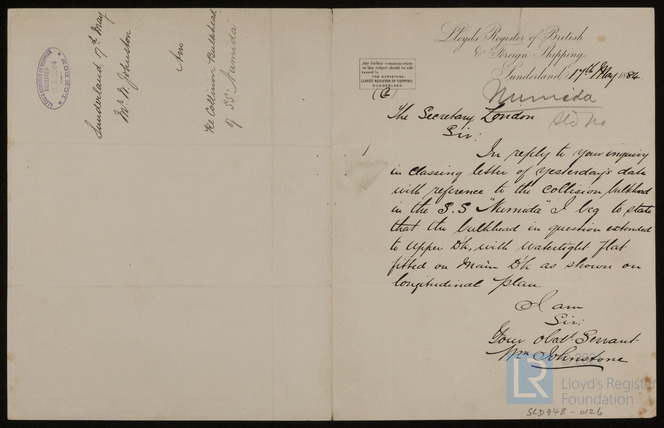 Sunderland 17th May
Mr W Johnston
Ans
Re Collision Bulkhead
of SS "Numida"
Lloyd's Register of British
& Foreign Shipping.
Sunderland 17th May 1884
Any further communication
on this subject should be addressed to
THE SURVEYORS,
LLOYD'S REGISTER OF SHIPPING,
SUNDERLAND.
Numida
Sld No
The Secretary London.
Sir:
In reply to your inquiry
in classing letter of yesterday's date
with reference to the collision bulkhead
in the S.S "Numida" I beg to state
that the bulkhead in question extended
to upper Dk, with watertight flat
fitted on Main Dk as shown on
longitudinal plan.
I am
Sir:
Your Obdt. Servant
Wm Johnstone
LR
Lloyd's Register
Foundation
SLD948-0126